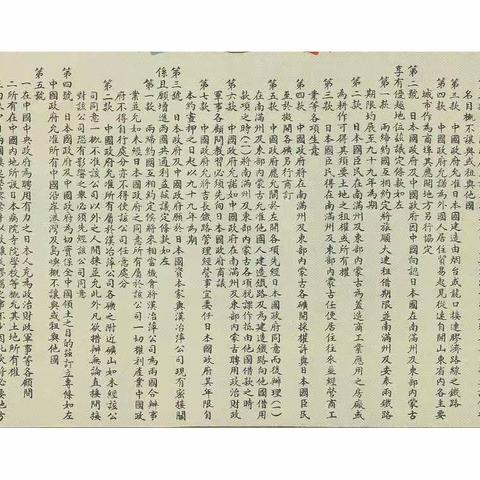 名目概不讓與或租與他國
第三款 中國政府允准日本國建造由烟台或龍口接連膠濟路線之鐵路
第四款 中國政府允諾為外國人居住貿易起見從速自開山東省內各主要
城市作為商埠其應開地方另行協定
第二號 日本國政府及中國政府因中國向認日本國在南滿州及東部內蒙古
享有優越地位茲議定條款如左
第一款 兩訂約國互相約定將旅順大連租借期限並南滿州及安奉兩鐵路
期限均展至九十九年為期
第二款 日本國臣民在南滿州及東部內蒙古為蓋造商工業應用之房廠或
為耕作可得其須要土地之租權或所有權
第三款 日本國臣民得在南滿州及東部內蒙古任便居住往來並經營商工
業等各項生意
第四款 中國政府將在南滿州及東部內蒙古各礦開採權許與日本國臣民
至於擬開各礦另行商訂
第五款 中國政府應允關於左開各項先經日本國政府同意而後辦理(一)
在南滿州及東部內蒙古允准他國人建造鐵路或為建造鐵路向他國借用
款項之時(二)將南滿州及東部內蒙古各項稅課作抵由他國借款之時
第六款 中國政府允諾如中國政府在南滿州及東部內蒙古聘用政治財政
軍事各顧問教習必須先向日本國政府商議
第七款 中國政府允將吉長鐵路管理經營事宜委任日本國政府其年限自
本約畫押之日起以九十九年為期
第三號 日本政府及中國政府願於日本國資本家與漢冶萍公司現有密接關
係且願增進兩國共通利益茲議定條款如左
第一款 兩締約國互相約定俟將來相當機會將漢冶萍公司作為兩國合辦事
業並允如未經日本國政府之同意所有屬於該公司一切權利產業中國政
府不得自行處分亦不得使該公司任意處分
第二款 中國政府允准所有屬於漢冶萍公司各礦之附近礦山如未經該公
司同意一概不准該公司以外之人開採並允此外凡欲措辦無論直接間接
對該公司恐有影響之舉必須先經該公司同意
第四號 日本國政府及中國政府為切實保全中國領土之目的茲訂立專條如左
中國政府允准所有中國沿岸港灣及島嶼概不讓與或租與他國
第五號
一在中國中央政府須聘用有力之日本人充為政治財政軍事等各顧問
二所有在中國內地所設日本病院寺院學校等概允其土地所有權